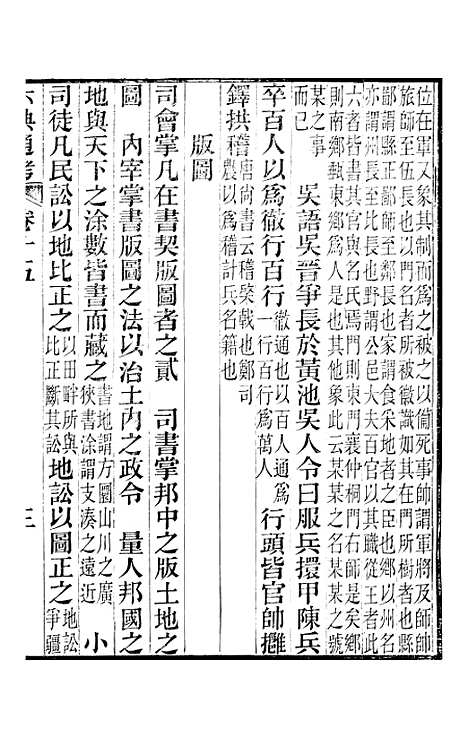 位在軍又象其制而為之被之以備死事帥謂軍將及師帥
旅帥至伍長也以門名者所被徽識如其在門所樹者也縣
鄙謂縣正鄙師至鄰長也家謂食采地者之臣也鄉以州名
亦謂州長至比長也野謂公邑大夫百官以其職從王者此
六者皆書其官與名氏焉門則東門襄仲桐門右師是矣鄉
則南鄉甀東鄉為人是也其他象此云某某之名某某之號
某某之事
而已　吳語吳晉爭長於黃池吳人令曰服兵擐甲陳兵
卒百人以為徹行百行徹通也以百人通為
一行百行為萬人行頭皆官帥擁
鐸拱稽唐尚書云稽棨戟也鄭司
農以為稽計兵名籍也
版圖
司會掌凡在書契版圖者之貳　司書掌邦中之版土地之
圖　內宰掌書版圖之法以治土內之政令　量人邦國之
地與天下之涂數皆書而藏之書地謂方圜山川之廣
狹書涂謂支湊之遠近　小
司徒凡民訟以地比正之以田畔所與
比正斷其訟地訟以圖正之地訟
爭疆
六典通考　卷十五　三